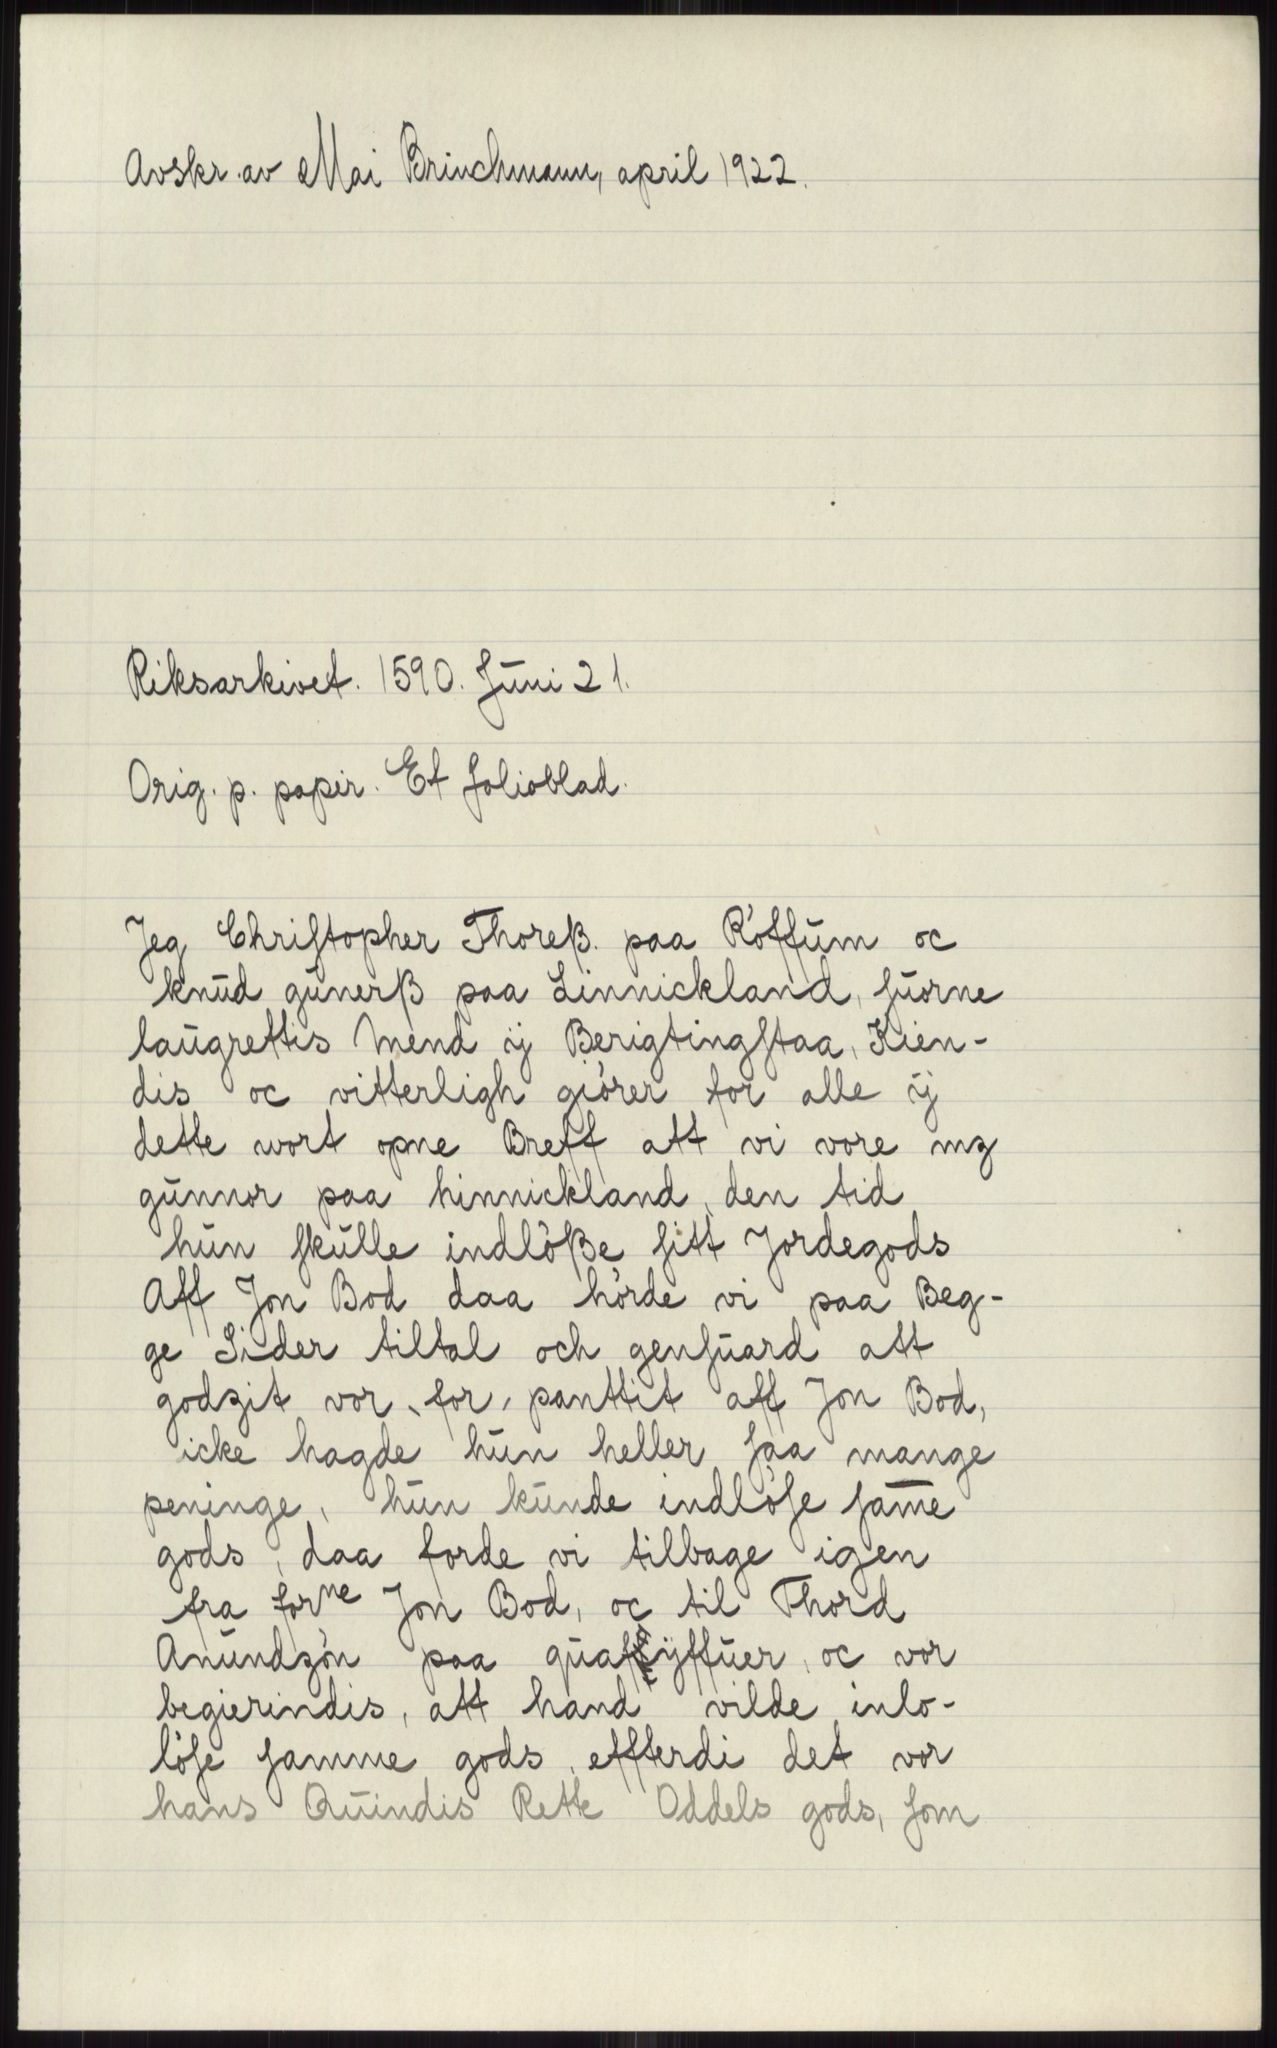 Avskr. av Mai Brinchmann, april 1922.
Riksarkivet. 1590. Juni 21.
Orig. p. papir. Et folioblad.
Jeg Chriſtopher Thoreß. paa Röffŭm oc
knŭd gŭnerß paa Linnickland, ſŭorne
laŭgrettis Mend ÿ Berigtingſtaa, Kien-
dis oc vitterligh giörer for alle ÿ
dette wort opne Breff att vi vore mz
gŭnnor paa hinnickland, den tid
hŭn ſkŭlle indlöße ſitt Jordegods
Aff Jon Bod daa hörde vi paa Beg-
ge Sider tiltal och genſŭard att
godzit vor for panttit aff Jon Bod,
icke hagde hŭn heller ſaa mange
peninge, hŭn kŭnde indlöſe ſam̅e
gods, daa forde vi tilbage igen
fra forne Jon Bod, oc til Thord
Anŭndzön paa qŭaſſÿffŭer, oc vor
begierindis, att hand vilde inlo-
löſe ſamme gods, effterdi det vor
hans Qŭindis Rette Oddels gods, ſom